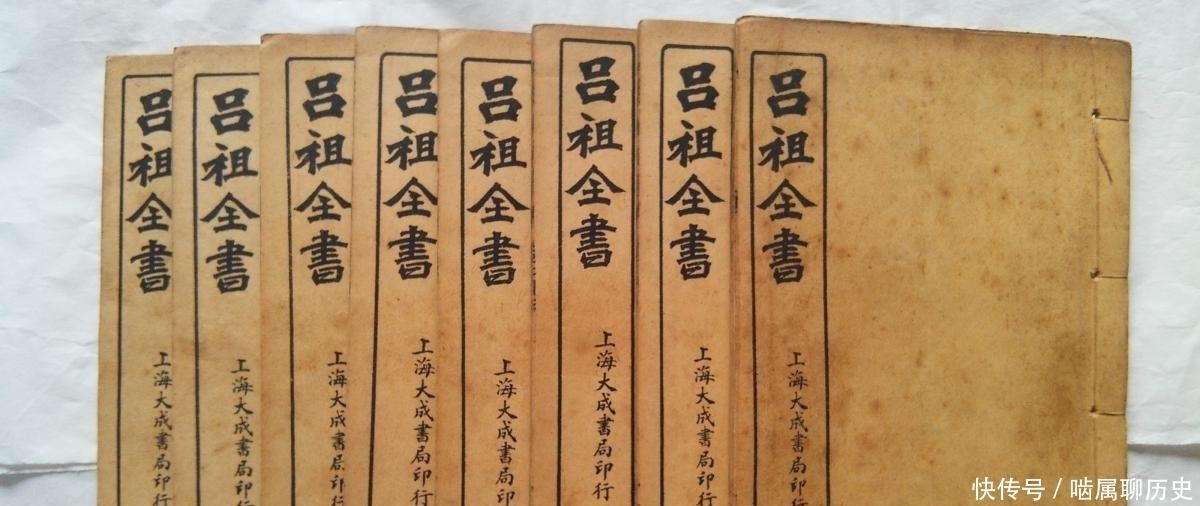 呂祖全書
上海大成書局印行
呂祖全書
上海大成書局印行
呂祖全書
上海大成書局印行
呂祖全書
上海大成書局印行
呂祖全書
上海大成書局印
呂祖全書
上海大成書局印行
呂祖全書
上海大成書局印行
呂祖全書
上海大成書局印
快传号 / 啮属聊历史